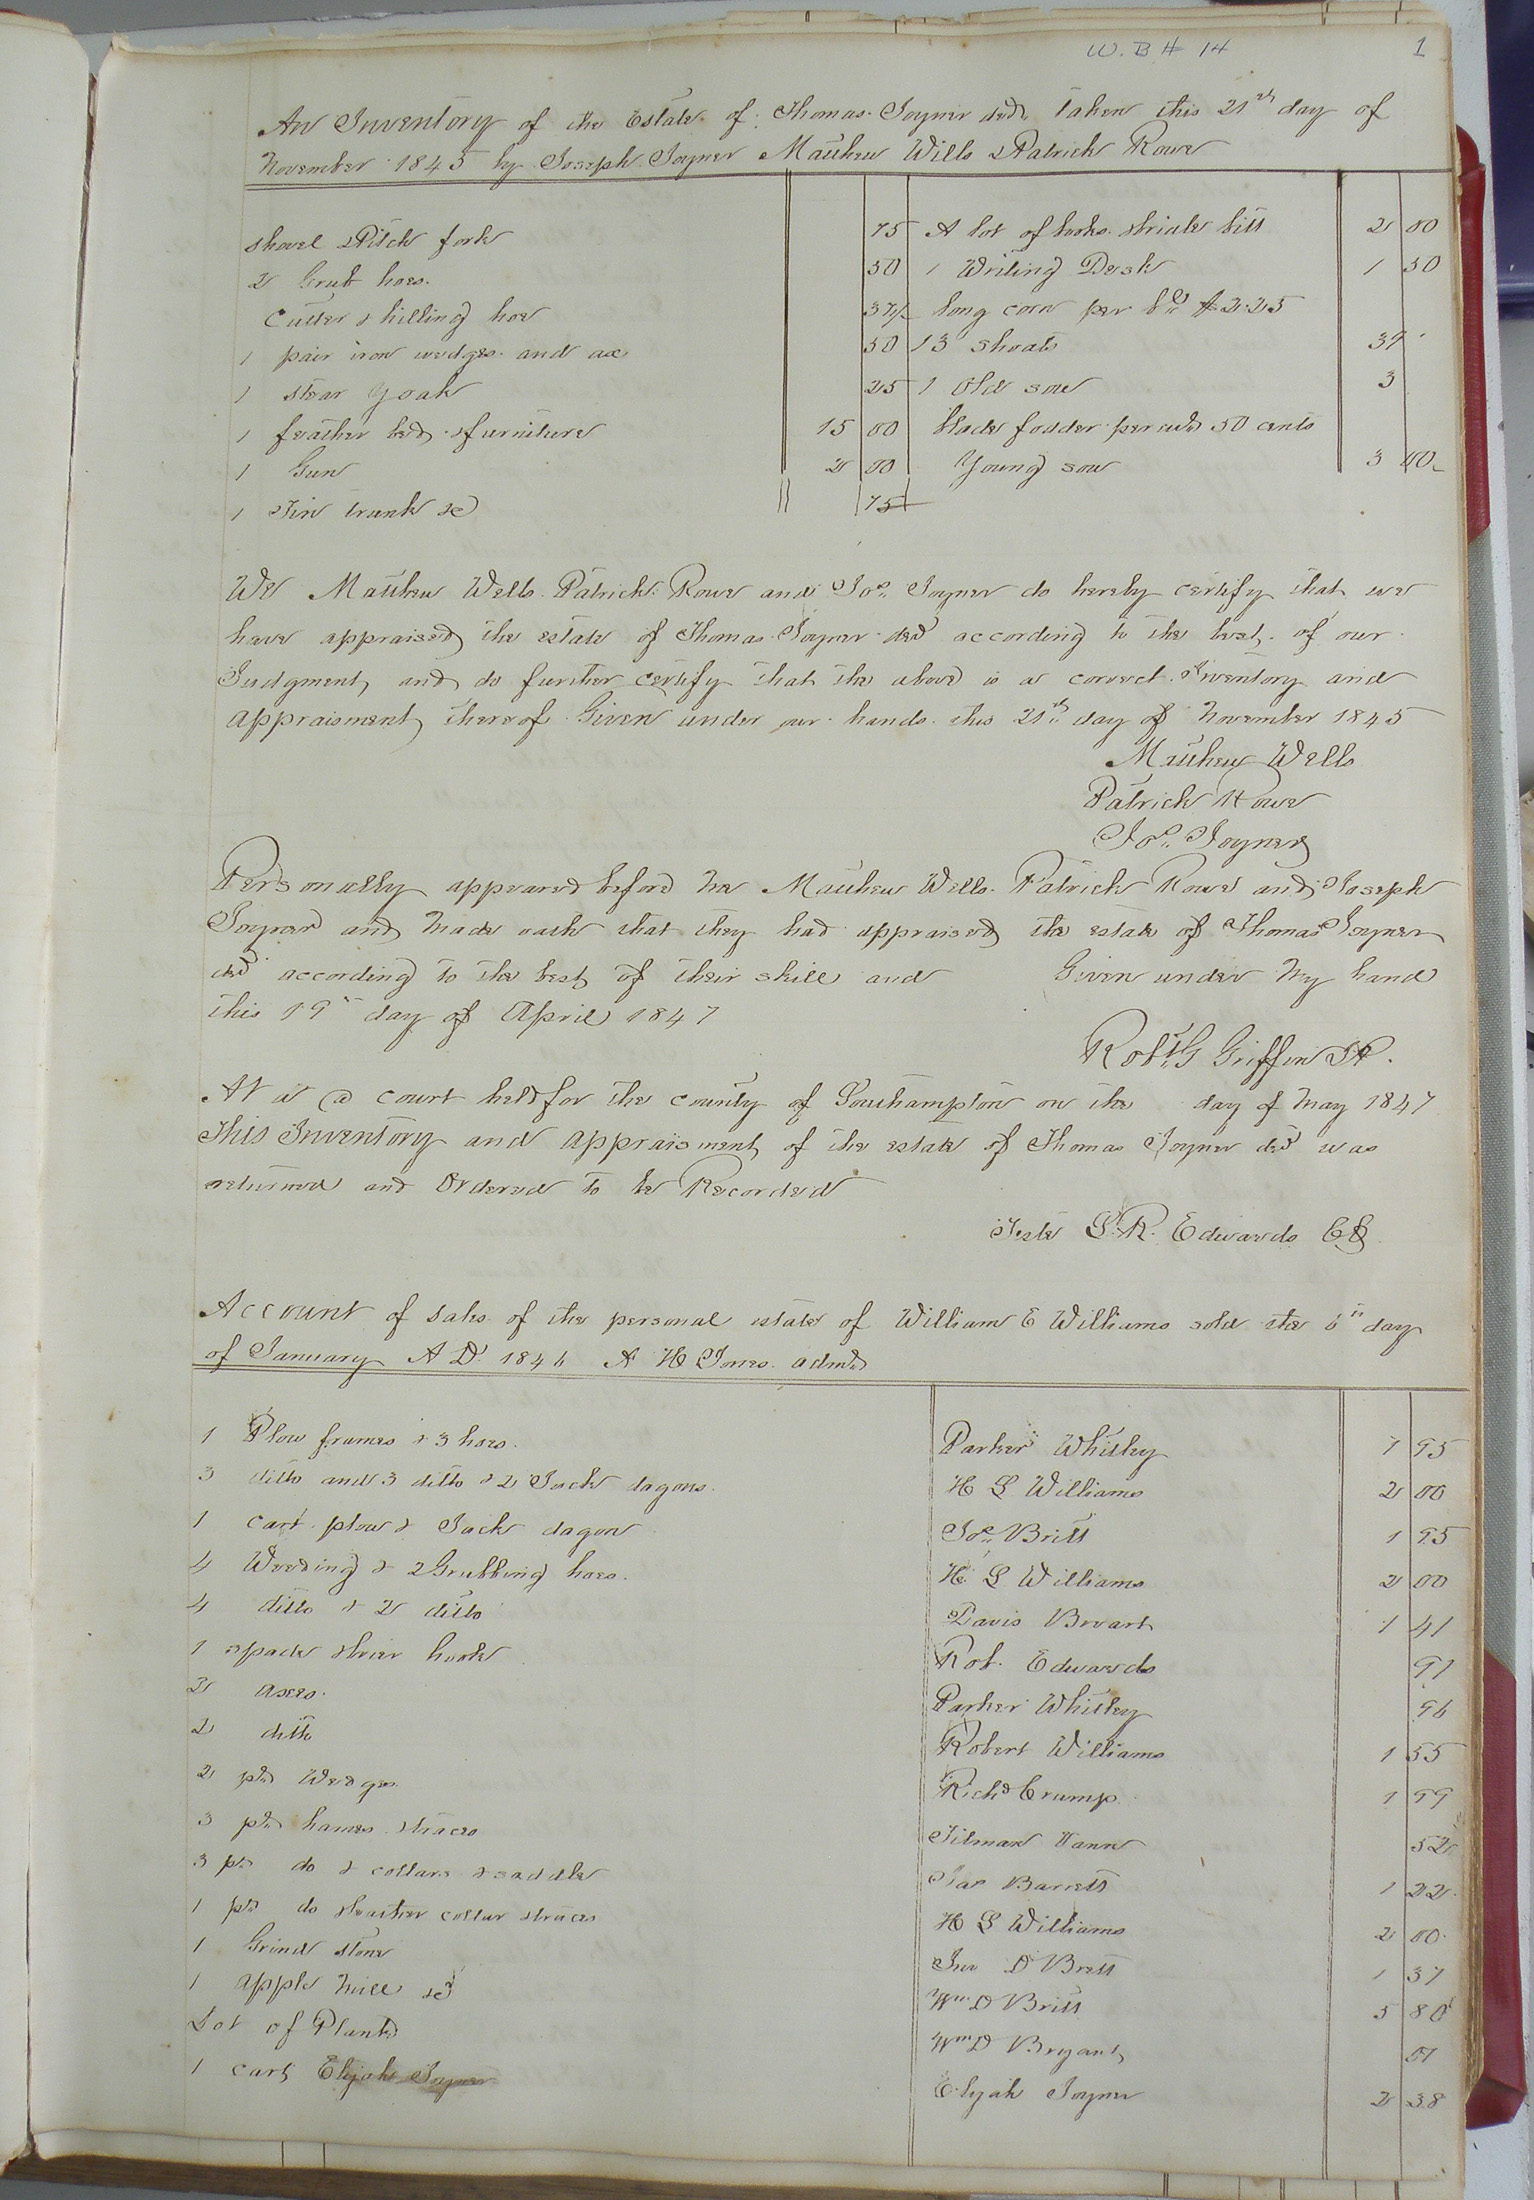 W. B # 14 1
An Inventory of the Estate of Thomas Joyner decd. taken this 21th day of
November 1845 by Joseph Joyner Matthew Wills & Patrick Rowe
shovel & Pitch fork 75 A lot of books & bits 2 00
2 Grub hoes. 50 1 Writing Desk 1 50
Cutter & hilling hoe 37½ long corn per bl $2.25
1 pair iron wedges and ax 50 13 shoats 39
1 stear yoak 25 1 Old sow 3
1 feather bed & furniture 15 00 blade fodder per cwt 50 cents
1 Gun 2 00 Young sow 3 00
1 Tin trunk &c 75
We Matthew Wells Patrick Rowe and Jos. Joyner do hereby certify that we
have appraised the estate of Thomas Joyner decd according to the best of our
Judgment, and do further certify that the above is a correct Inventory and
appraisment thereof Given under our hands this 21th day of November 1845
Matthew Wells
Patrick Rowe
Jos. Joyner
Personally appeared before me Matthew Wells Patrick Rowe and Joseph
Joyner and made oath that they had appraised the estate of Thomas Joyner
decd according to the best of their skill and Given under my hand
this 19th day of April 1847
Robt. G Griffin JP.
At a a court held for the county of Southampton on the day of May 1847
This Inventory and appraisment of the estate of Thomas Joyner decd was
returned and Ordered to be Recorded
Teste L. R. Edwards CC
Account of sales of the personal estate of William E Williams sold the 6th day
of January A D. 1846 A H Jones admr
1 Plow frames & 3 hoes. Parker Whitley 1 95
3 ditto and 3 ditto & 2 Jack dagons. H L Williams 2 00
1 cart plow & Jack dagon Jos. Britt 1 95
4 Weeding & 2 Grubbing hoes. H. L Williams 2 00
4 ditto & 2 ditto Davis Bryart 1 41
1 spade & brier hook Rob. Edwards 91
2 axes. Parker Whitley 96
2 ditto Robert Williams 1 55
2 pr Wedges Richd Crump 1 99
3 pr hames & traces Tilman Vann 52
3 pr do & collars & saddle Jas Barrett 1 22
1 pr do & leather collar & traces H L Williams 2 00
1 Grind stone Jno D Brett 1 37
1 apple mill &c Wm D Britt 5 80
Lot of Plank Wm D Bryant 07
1 cart Elijah Joyner Elijah Joyner 2 38